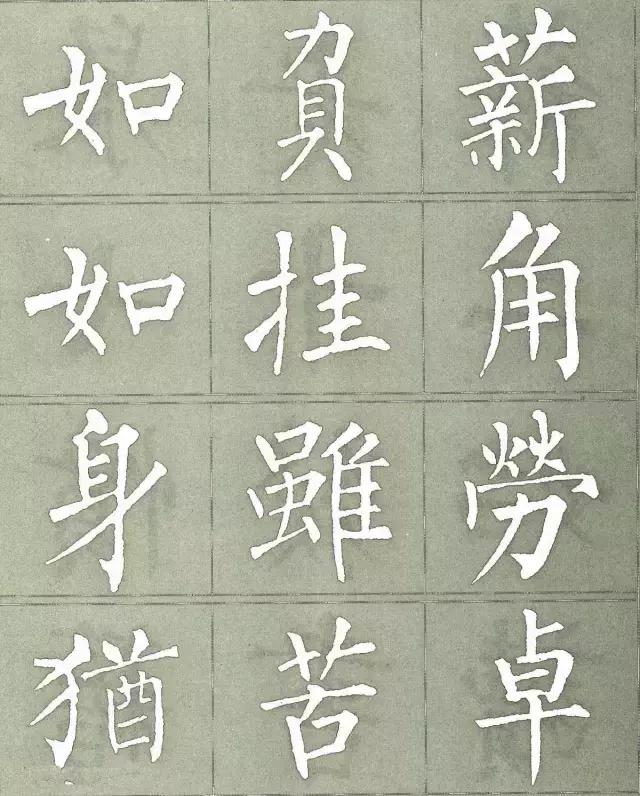 如負薪
如挂角
身雖勞
猶苦卓